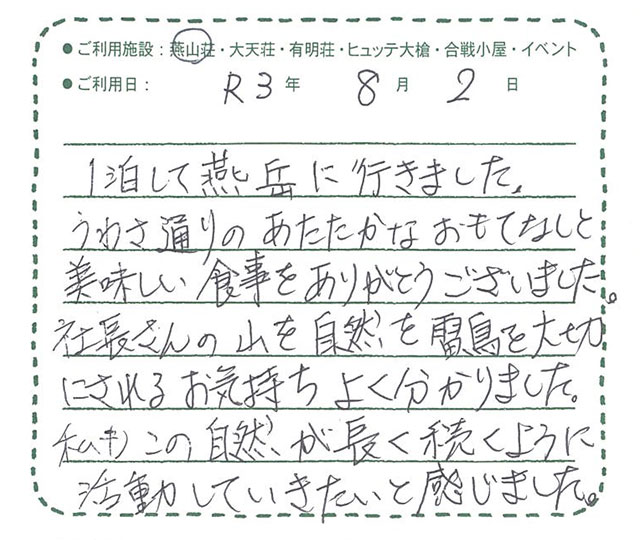 ●ご利用施設：燕山荘・大天荘・有明荘・ヒュッテ大槍・合戦小屋・イベント
●ご利用日： R3年 8月 2日
1泊して燕岳に行きました。
うわさ通りのあたたかなおもてなしと
美味しい食事をありがとうございました。
社長さんの山を自然を雷鳥を大切
にされるお気持ちよく分かりました。
私もこの自然が長く続くように
活動していきたいと感じました。